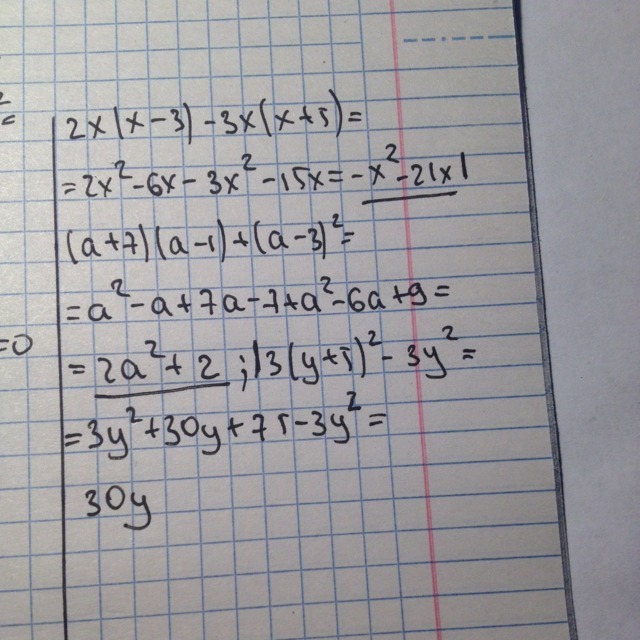 2
=
2x(x-3)-3x(x+5)=
=2x²-6x-3x²-15x=-x²-21x|
(a+7)(a-1)+(a-3)²=
=a²-a+7a-7+a²-6a+9=
=0
=2a²+2;|3(y+5)²-3y²=
=3y²+30y+75-3y²=
30y